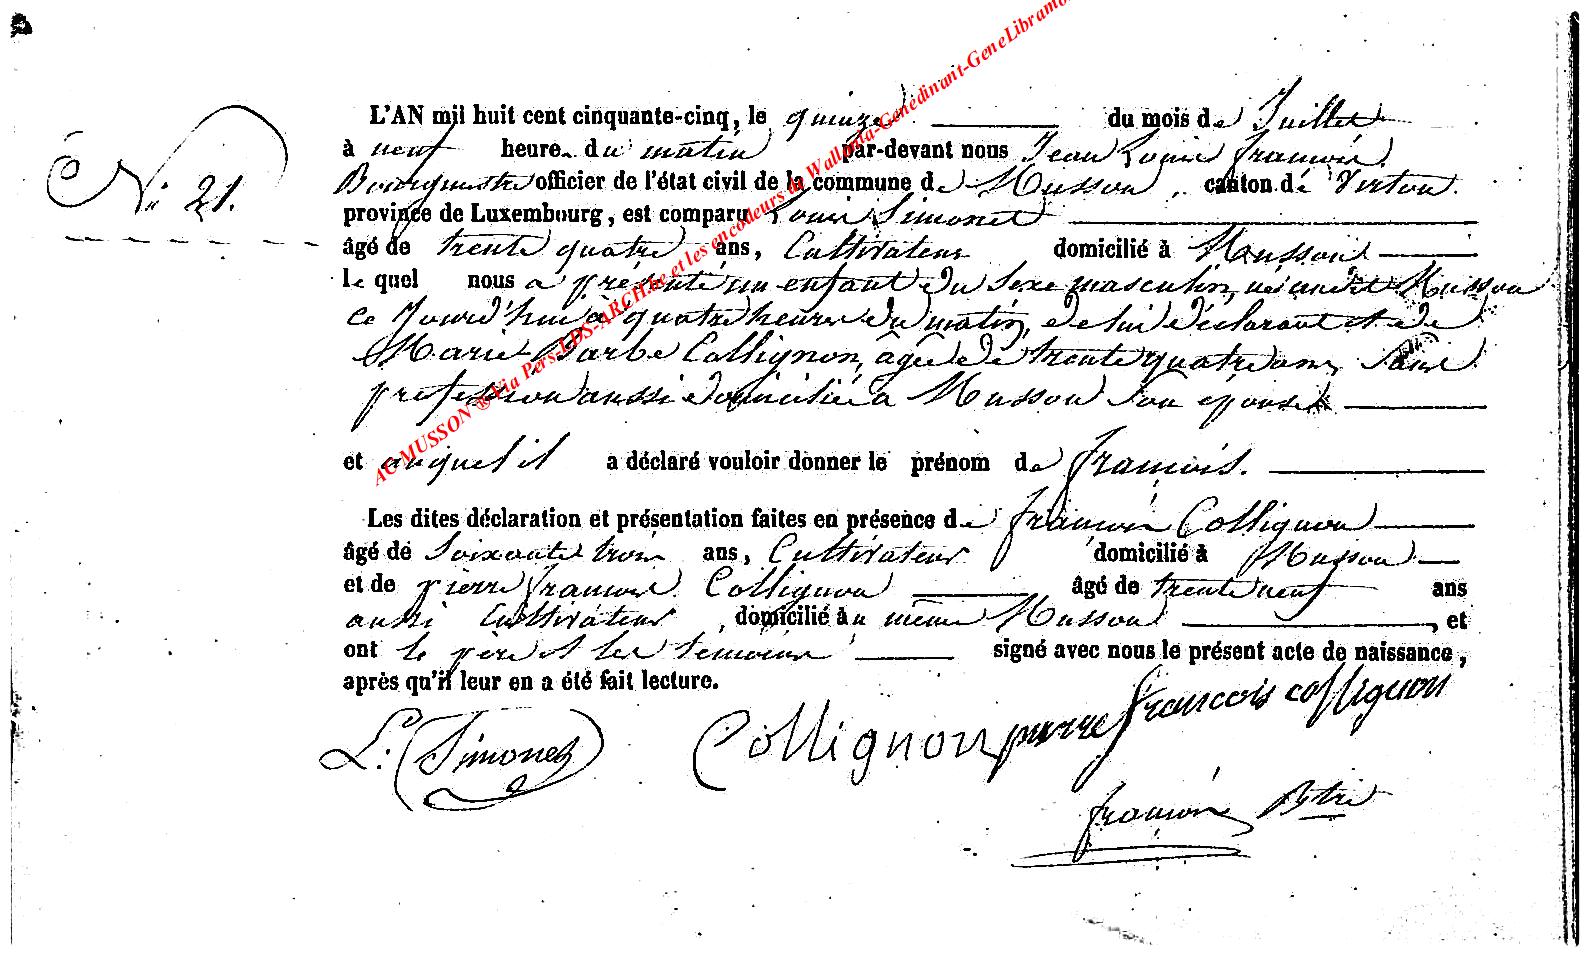 N° 21.
L'AN mil huit cent cinquante-cinq, le quinze du mois de Juillet
à neuf heure du matin par-devant nous Jean Louis françois
Bourgmestre officier de l'état civil de la commune de Musson, canton de Virton
province de Luxembourg, est comparu Louis Simonet
âgé de trente quatre ans, Cultivateur domicilié à Musson
lequel nous a présenté un enfant du Sexe masculin, né audit Musson
ce Jourd'hui à quatre heures du matin, de lui déclarant et de
Marie Barbe Collignon, âgée de trente quatre ans, Sans
profession aussi domiciliée à Musson Son épouse
et auquel il a déclaré vouloir donner le prénom de françois.
Les dites déclaration et présentation faites en présence de françois Collignon
âgé de Soixante trois ans, Cultivateur domicilié à Musson
et de pierre françois Collignon âgé de trente neuf ans
aussi Cultivateur, domicilié au même Musson, et
ont le père et les témoins signé avec nous le présent acte de naissance,
après qu'il leur en a été fait lecture.
L. Simonet Collignon pierre francois collignon
françois Bstre
AC MUSSON ® Via Pers-LDS-ARCH.be et les encodeurs de Wallonia-Genedinant-GeneLibramo